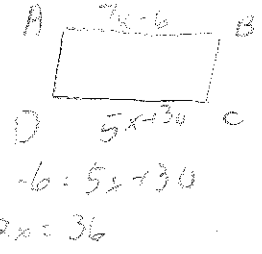 A 7x-6 B
D 5x+30 C
-6=5x+30
2x=36